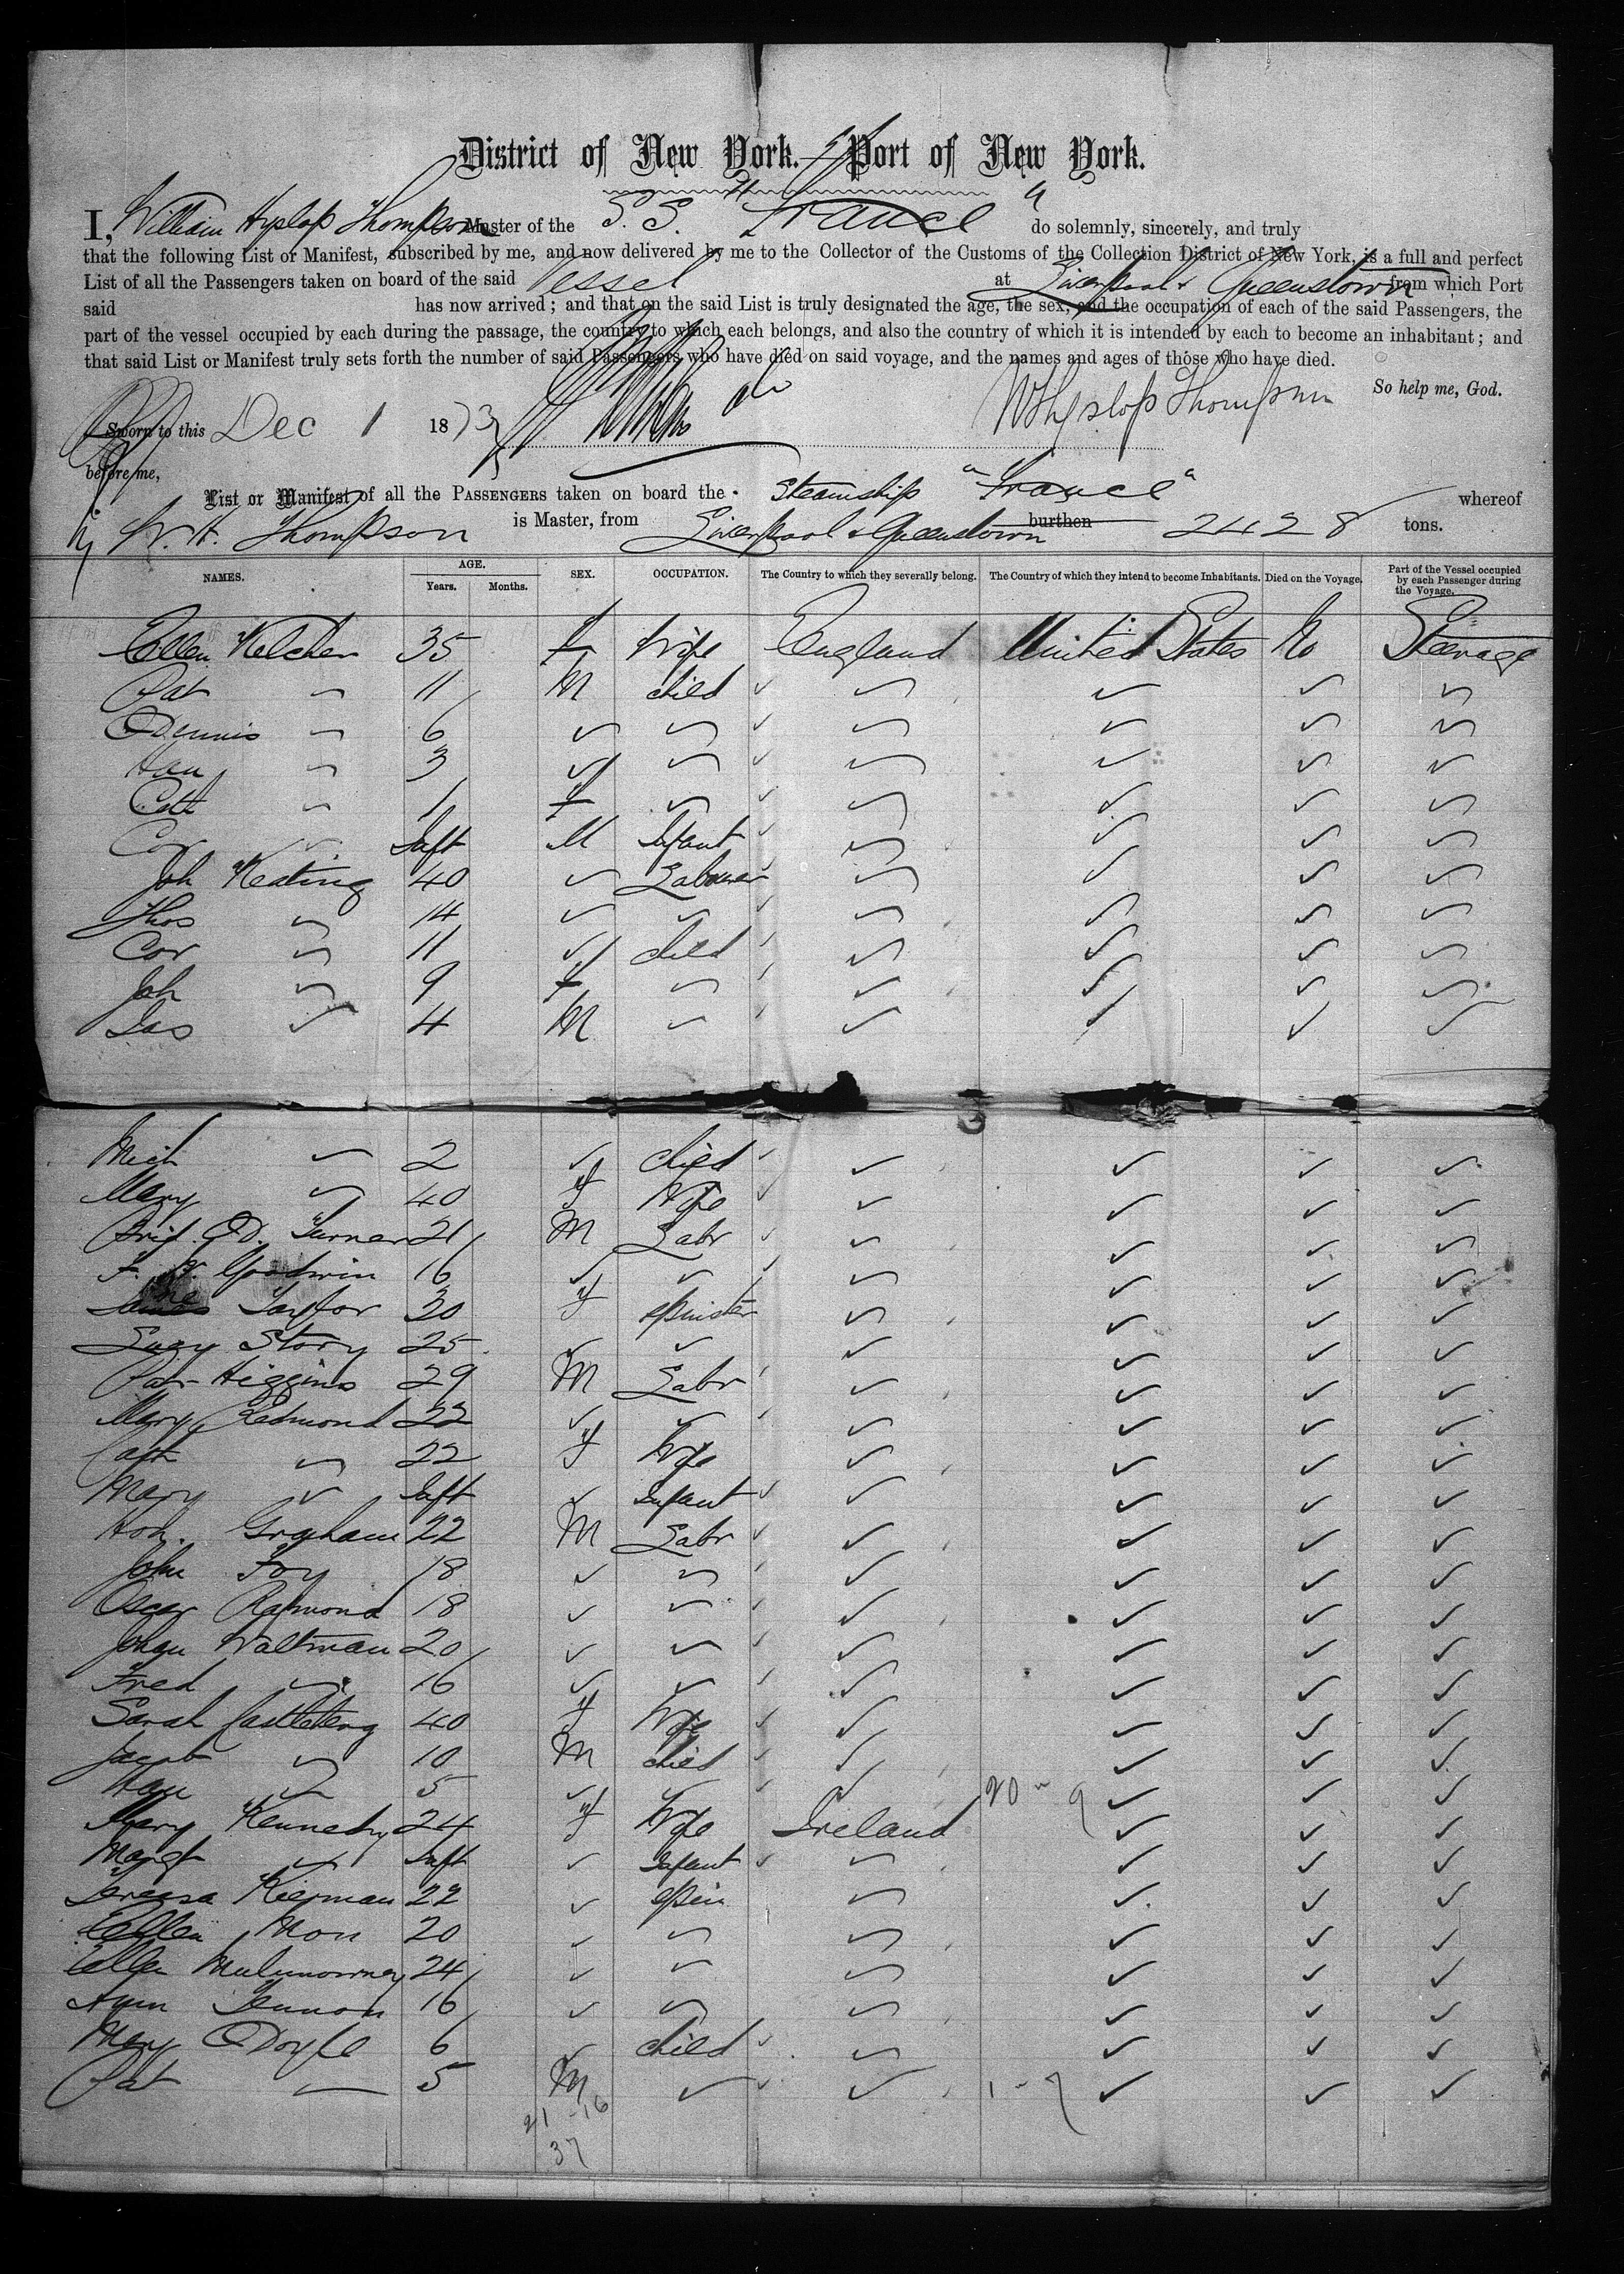 District of New York.—Port of New York.
I, William Hyslop Thompson Master of the S.S. "France" do solemnly, sincerely, and truly
that the following List or Manifest, subscribed by me, and now delivered by me to the Collector of the Customs of the Collection District of New York, is a full and perfect
List of all the Passengers taken on board of the said Vessel at Liverpool & Queenstown from which Port
said has now arrived; and that on the said List is truly designated the age, the sex, and the occupation of each of the said Passengers, the
part of the vessel occupied by each during the passage, the country to which each belongs, and also the country of which it is intended by each to become an inhabitant; and
that said List or Manifest truly sets forth the number of said Passengers who have died on said voyage, and the names and ages of those who have died.
So help me, God.
Sworn to this Dec 1 1873 W Hyslop Thompson
before me,
List or Manifest of all the PASSENGERS taken on board the Steamship "France" whereof
W. H. Thompson is Master, from Liverpool & Queenstown burthen 2428 tons.
NAMES. AGE. Years. Months. SEX. OCCUPATION. The Country to which they severally belong. The Country of which they intend to become Inhabitants. Died on the Voyage. Part of the Vessel occupied by each Passenger during the Voyage.
Ellen Kelcher 35 f Wife England United States No Steerage
Pat 11 M child
Dennis 6
Han 3
Cath 1 f
Cor Inft M Infant
Joh Keating 40 Labourer
Thos 14
Cor 11 child
Joh 9 f
Jas 4 M
Mich 2 child
Mary 40 f Wife
Brid. D. Turner 21 M Labr
F. Goodwin 16
Taylor 30 f Spinster
Lucy Story 25
Pat Higgins 29 M Labr
Mary Redmond 22
Cath 22 f Wife
Mary Inft Infant
Hon. Graham 22 M Labr
John Foy 18
Oscar Raymond 18
Johan Waltman 20
Fred 16
Sarah 40 f Wife
Jacob 10 M child
Han 5 20 9
Mary Kennedy 24 f Wife Ireland
Margt Inft Infant
Teresa Kiernan 22 Spin
Ellen Mon 20
Ellen Mulumowney 24
Ann Lennon 16
Mary Doyle 6 child
Pat 5 M 1 - 7
21 - 16
37